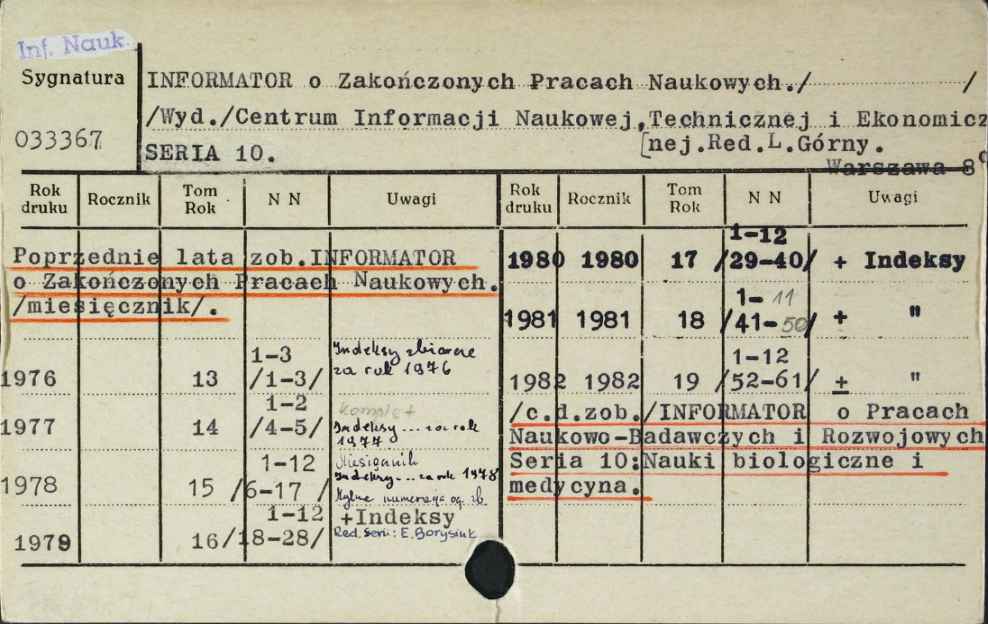 Inf. Nauk.
Sygnatura
033367
INFORMATOR o Zakończonych Pracach Naukowych./ /
/Wyd./Centrum Informacji Naukowej,Technicznej i Ekonomicz
[nej.Red.L.Górny.
SERIA 10.
Warszawa 8°
Rok druku Rocznik Tom Rok N N Uwagi
Rok druku Rocznik Tom Rok N N Uwagi
Poprzednie lata zob.INFORMATOR
o Zakończonych Pracach Naukowych.
/miesięcznik/.
1976 13 1-3 /1-3/ Indeksy zbiorcze za rok 1976
1977 14 1-2 /4-5/ komplet Indeksy ... za rok 1977
1978 15 1-12 /6-17 / Miesięcznik Indeksy ... za rok 1978 Mylna numeracja og. zb.
1979 16 1-12 /18-28/ +Indeksy Red. serii: E. Borysiuk
1980 1980 17 1-12 /29-40/ + Indeksy
1981 1981 18 1- 11 /41-50/ + "
1982 1982 19 1-12 /52-61/ + "
/c.d.zob./INFORMATOR o Pracach
Naukowo-Badawczych i Rozwojowych
Seria 10:Nauki biologiczne i
medycyna.